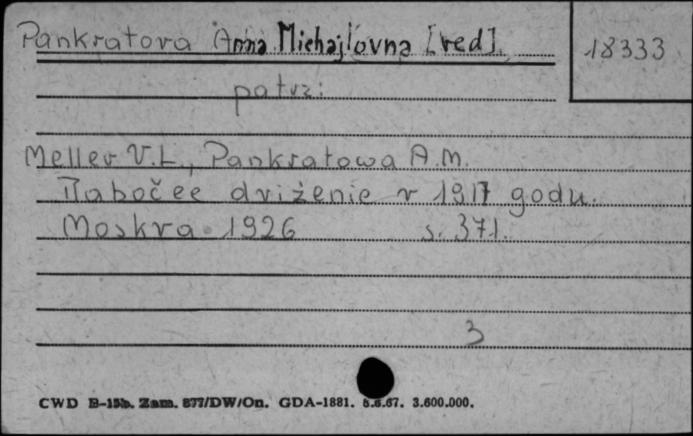 Pankratova Anna Michajlovna [red].
18333
patrz:
Meller V.L., Pankratowa A.M.
Rabočee dviženie v 1917 godu.
Moskva 1926 s. 371.
3
CWD B-15b. Zam. 877/DW/On. GDA-1881. 6.6.67. 3.600.000.